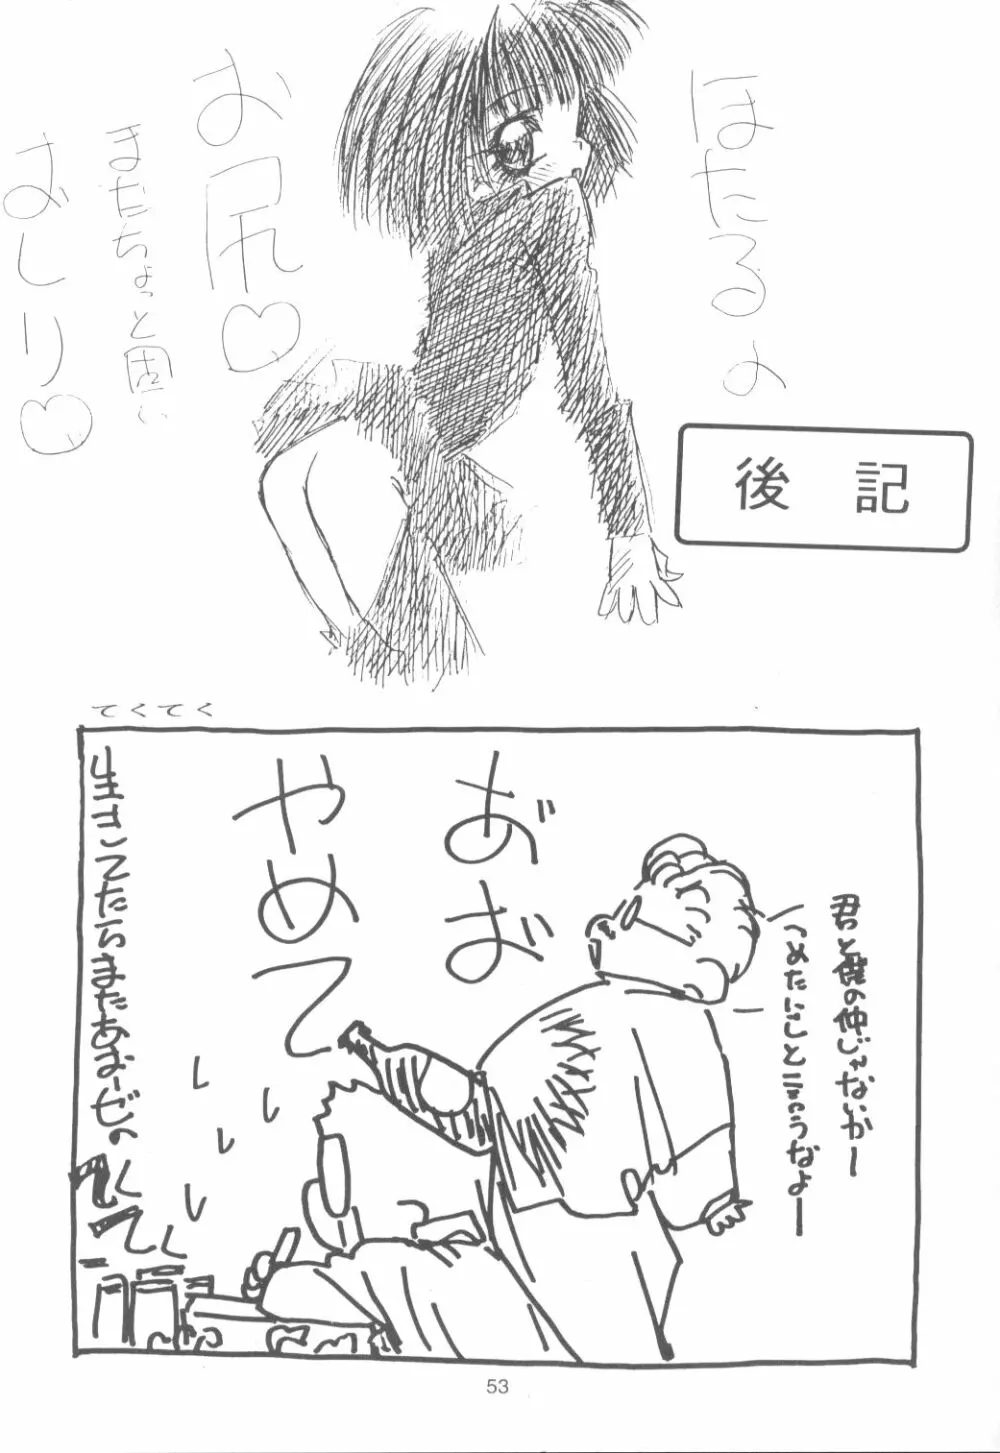 ほたるの
お尻♡
まだちょっと固い
おしり♡
後記
てくてく
君と僕の仲じゃないかー
つめたいこと言うなよー
おお
やめて
生きてたらまたあおーぜの